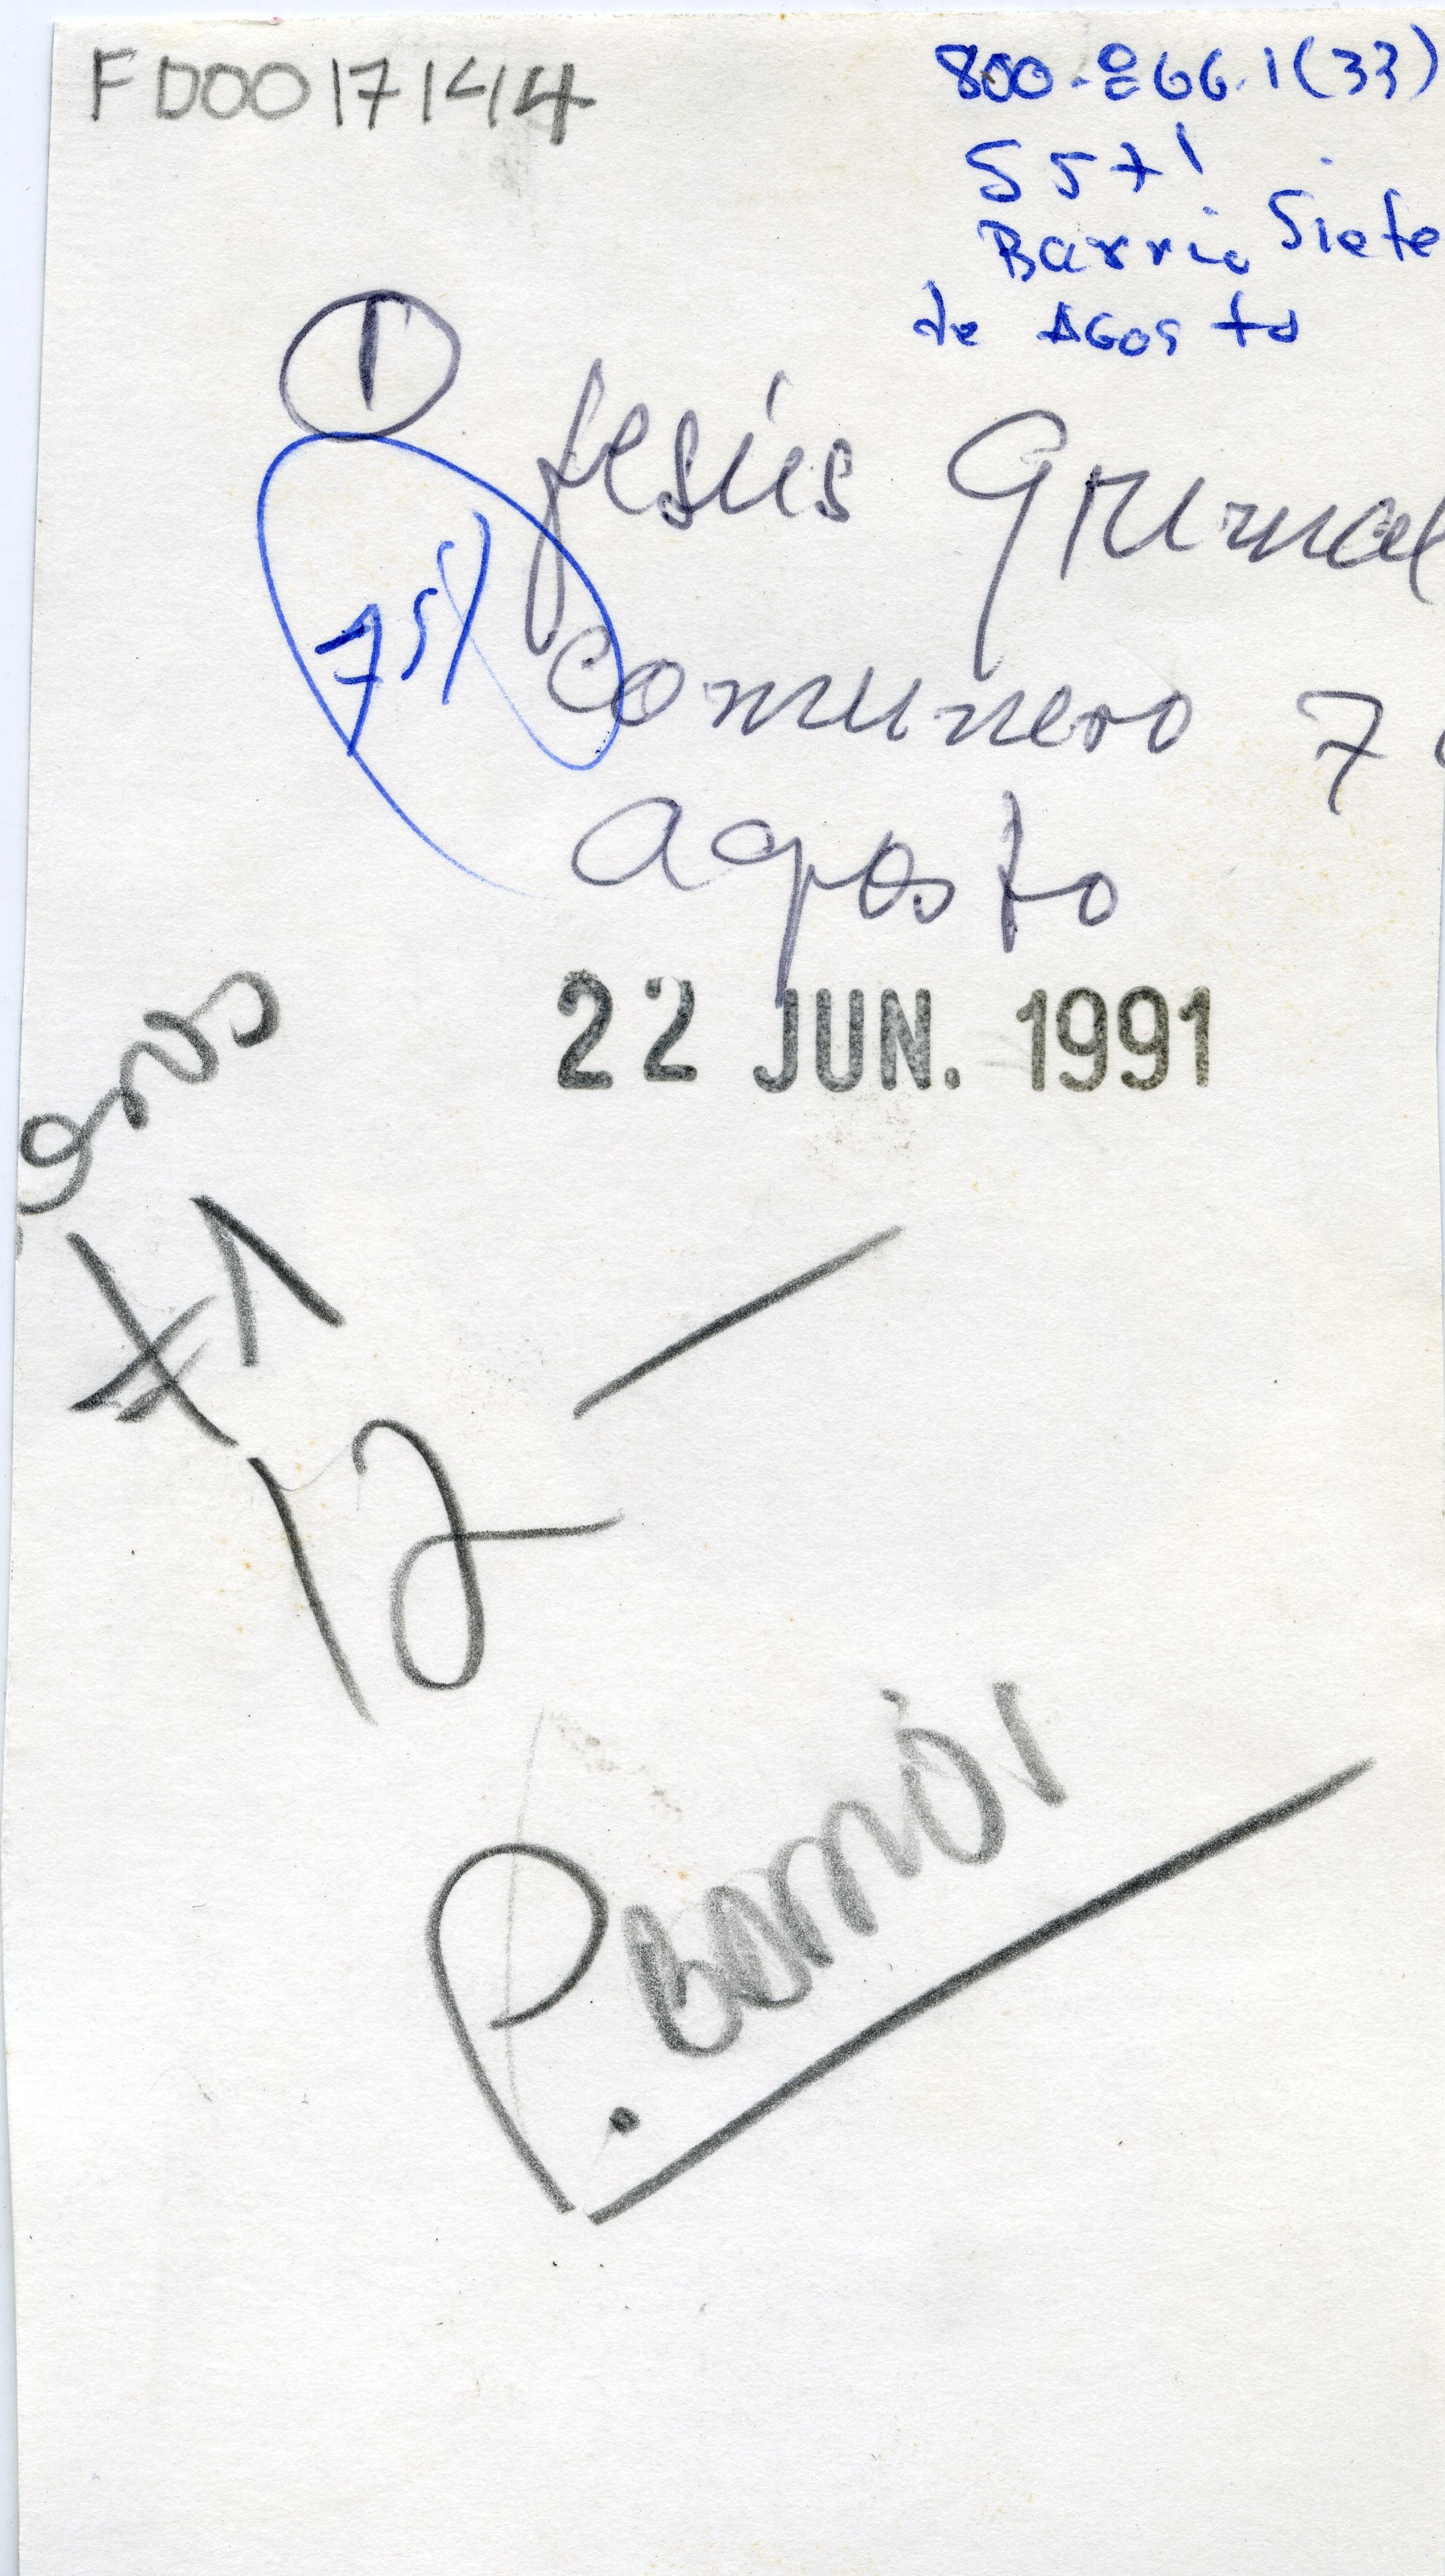 FD0017144
800-866.1(33)
557'
Barrio Siete
de AGosto
1
Jesús Grimal
75%
comunero 7
agosto
22 JUN. 1991
#1
12
P.